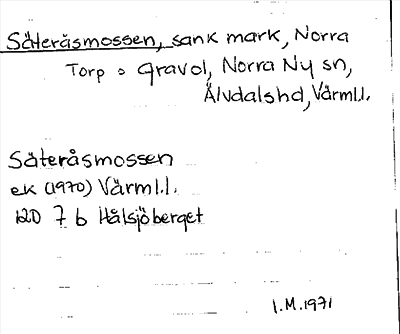 Säteråsmossen, sank mark, Norra
Torp o Gravol, Norra Ny sn,
Älvdalshd, Värml.l.
Säteråsmossen
ek (1970) Värml.l.
12D 7 b Hålsjöberget
I.M. 1971